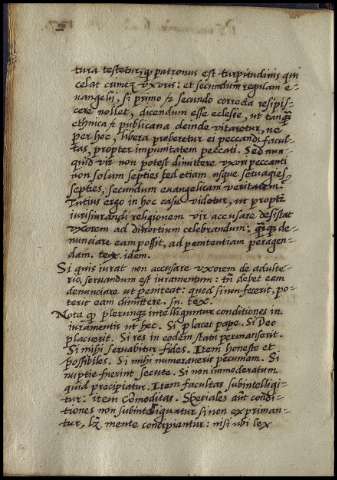 tura testetur, quia patronus est turpitudinis qui
celat crimen uxoris: et secundum regulam e-
vangelij, si primo et secundo correcta resipis-
cere nollet, dicendum esse eclesie, ut tanq̃
ethnica et publicana deinde vitaretur, ne
per hoc, libera preberetur ei peccandi facul-
tas, propter impunitatem peccati. Sed nun-
quid vir non potest dimittere uxori peccanti
non solum septies sed etiam usque septuagies
septies, secundum evangelicam veritatem.
Tutius ergo in hoc casu videtur, ut propter
iurisiurandi religionem vir accusare desistat
uxorem ad divortium celebrandum: q̃q̃ de-
nunciare eam possit, ad penitentiam peragen-
dam. tex. idem.
Si quis iurat non accusare uxorem de adulte-
rio, servandum est iuramentum: tñ debet eam
denunciare ut peniteat: quod si non fecerit, po-
terit eam dimittere. in. tex.
Nota q̃ plerunque intelliguntur conditiones in
iuramentis ut hec. Si placet pape. Si Deo
placuerit. Si res in eodem statu permanserit.
Si mihi servabitur fides. Item honeste et
possibiles. Si mihi numeraveris pecuniam. Si
nuptie fuerint secute. Si non immoderatum
quid precipiatur. Item facultas subintelligi-
tur: item Comoditas. Speciales aut condi-
tiones non subintelliguntur si non expriman-
tur, lz mente concipiantur: nisi ubi lex